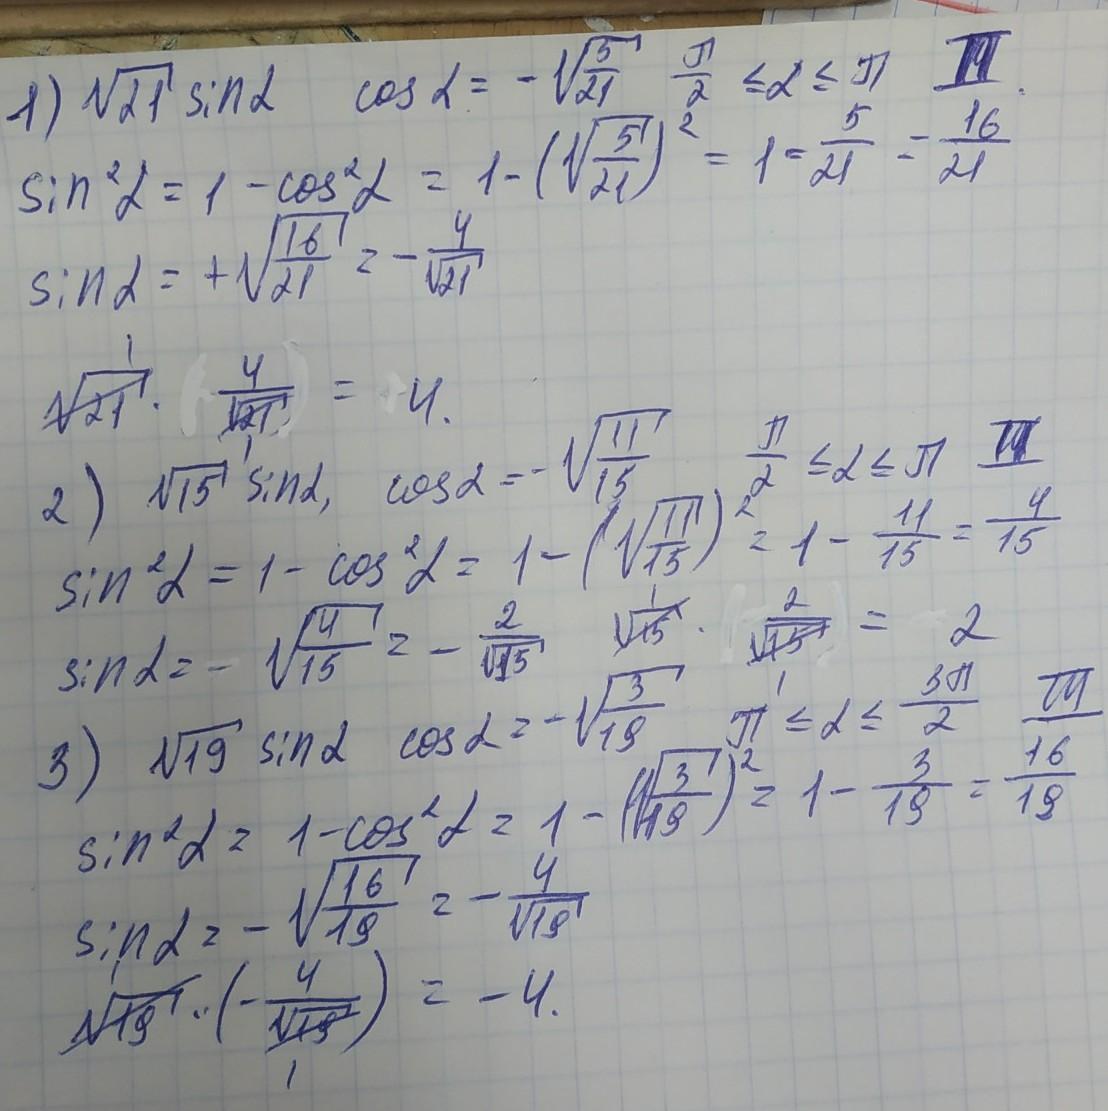 1) √21 sinα cosα = -√5/21 π/2 ≤ α ≤ π III.
sin²α = 1 - cos²α = 1 - (√5/21)² = 1 - 5/21 = 16/21
sinα = +√16/21 = - 4/√21
√21 · 4/√21 = 4.
2) √15 sinα, cosα = -√11/15 π/2 ≤ α ≤ π III
sin²α = 1 - cos²α = 1 - (√11/15)² = 1 - 11/15 = 4/15
sinα = - √4/15 = - 2/√15 √15 · 2/√15 = 2
3) √19 sinα cosα = -√3/19 π ≤ α ≤ 3π/2 III
sin²α = 1 - cos²α = 1 - (√3/19)² = 1 - 3/19 = 16/19
sinα = - √16/19 = - 4/√19
√19 · (- 4/√19) = - 4.